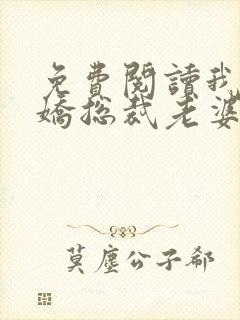 免費閱讀我
嬌總裁老婆
莫塵公子郗